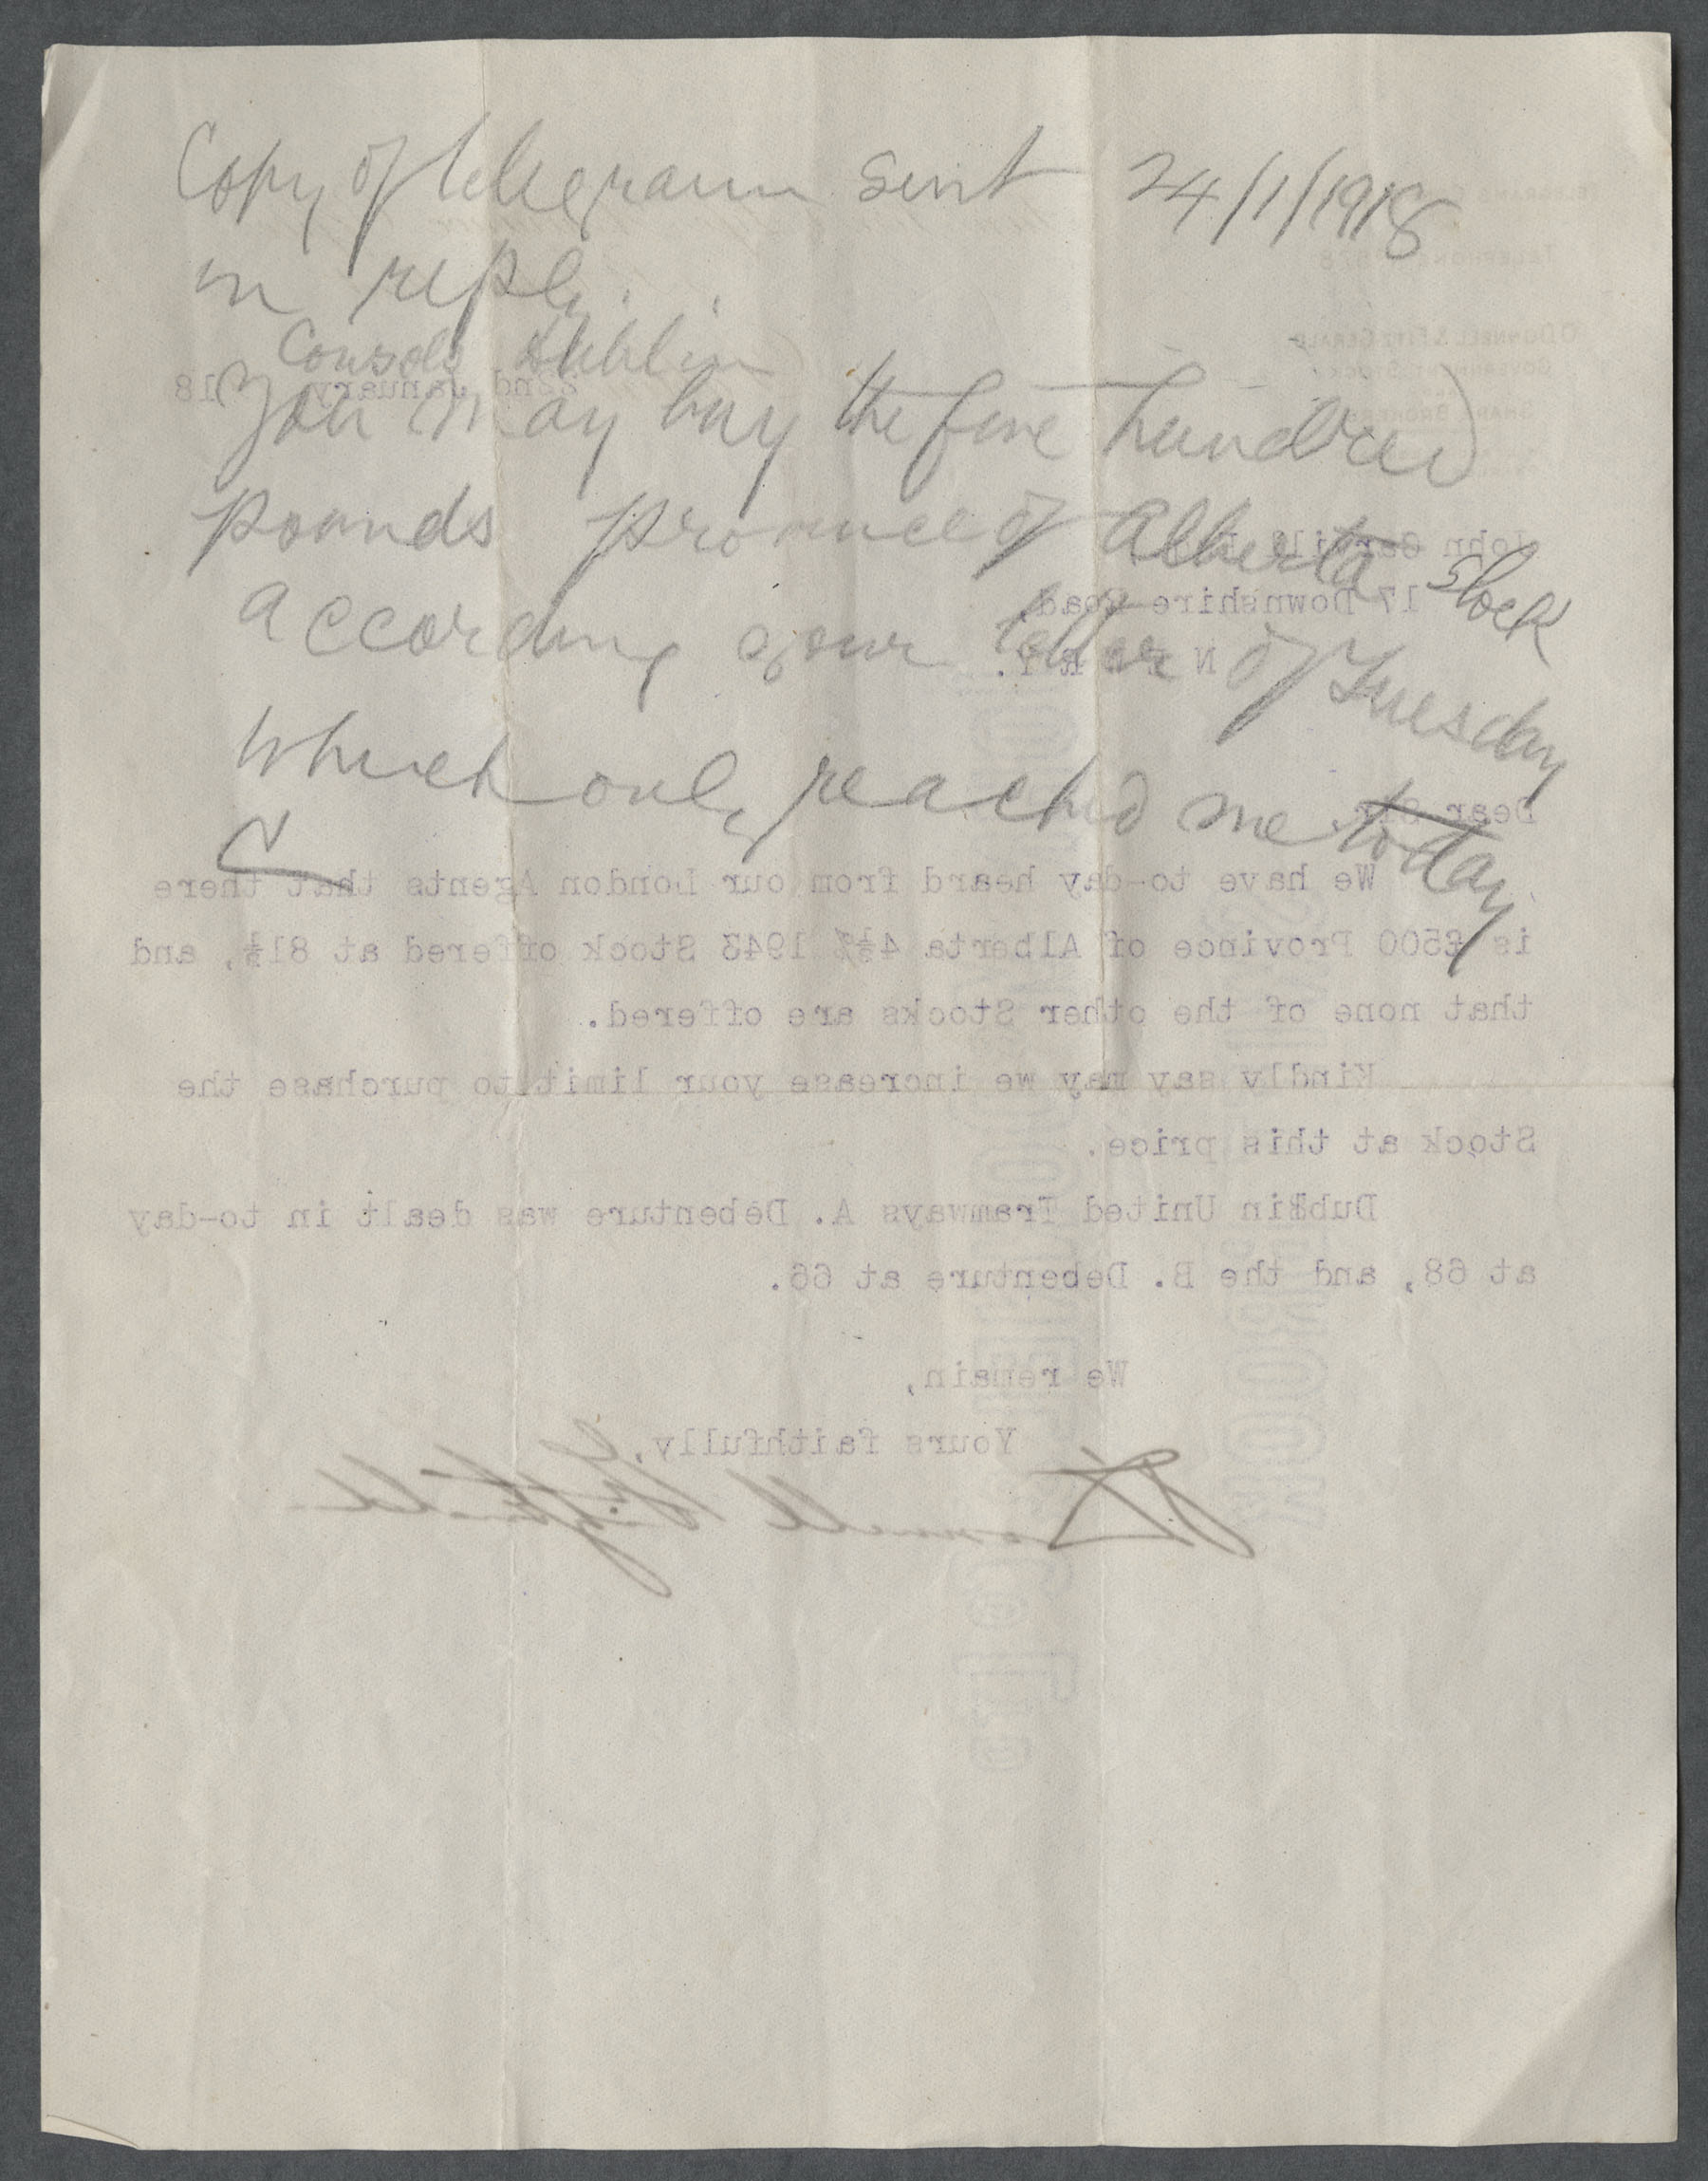 Copy of telegram sent 24/1/1918
in reply.
Consols Dublin
You may buy the five hundred
pounds province of Alberta Stock
according your letter of Tuesday
which only reached me today
22nd January 18
TELEPHONE
O'DONNELL & FITZGERALD
GOVERNMENT STOCK
SHARE BROKERS
John
17 Downshire Road,
Dear Sir,
We have to-day heard from our London Agents that there
is £500 Province of Alberta 4½% 1943 Stock offered at 81½, and
that none of the other Stocks are offered.
Kindly say may we increase your limit to purchase the
Stock at this price.
Dublin United Tramways A. Debenture was dealt in to-day
at 68, and the B. Debenture at 66.
We remain,
Yours faithfully,
O'Donnell Fitzgerald